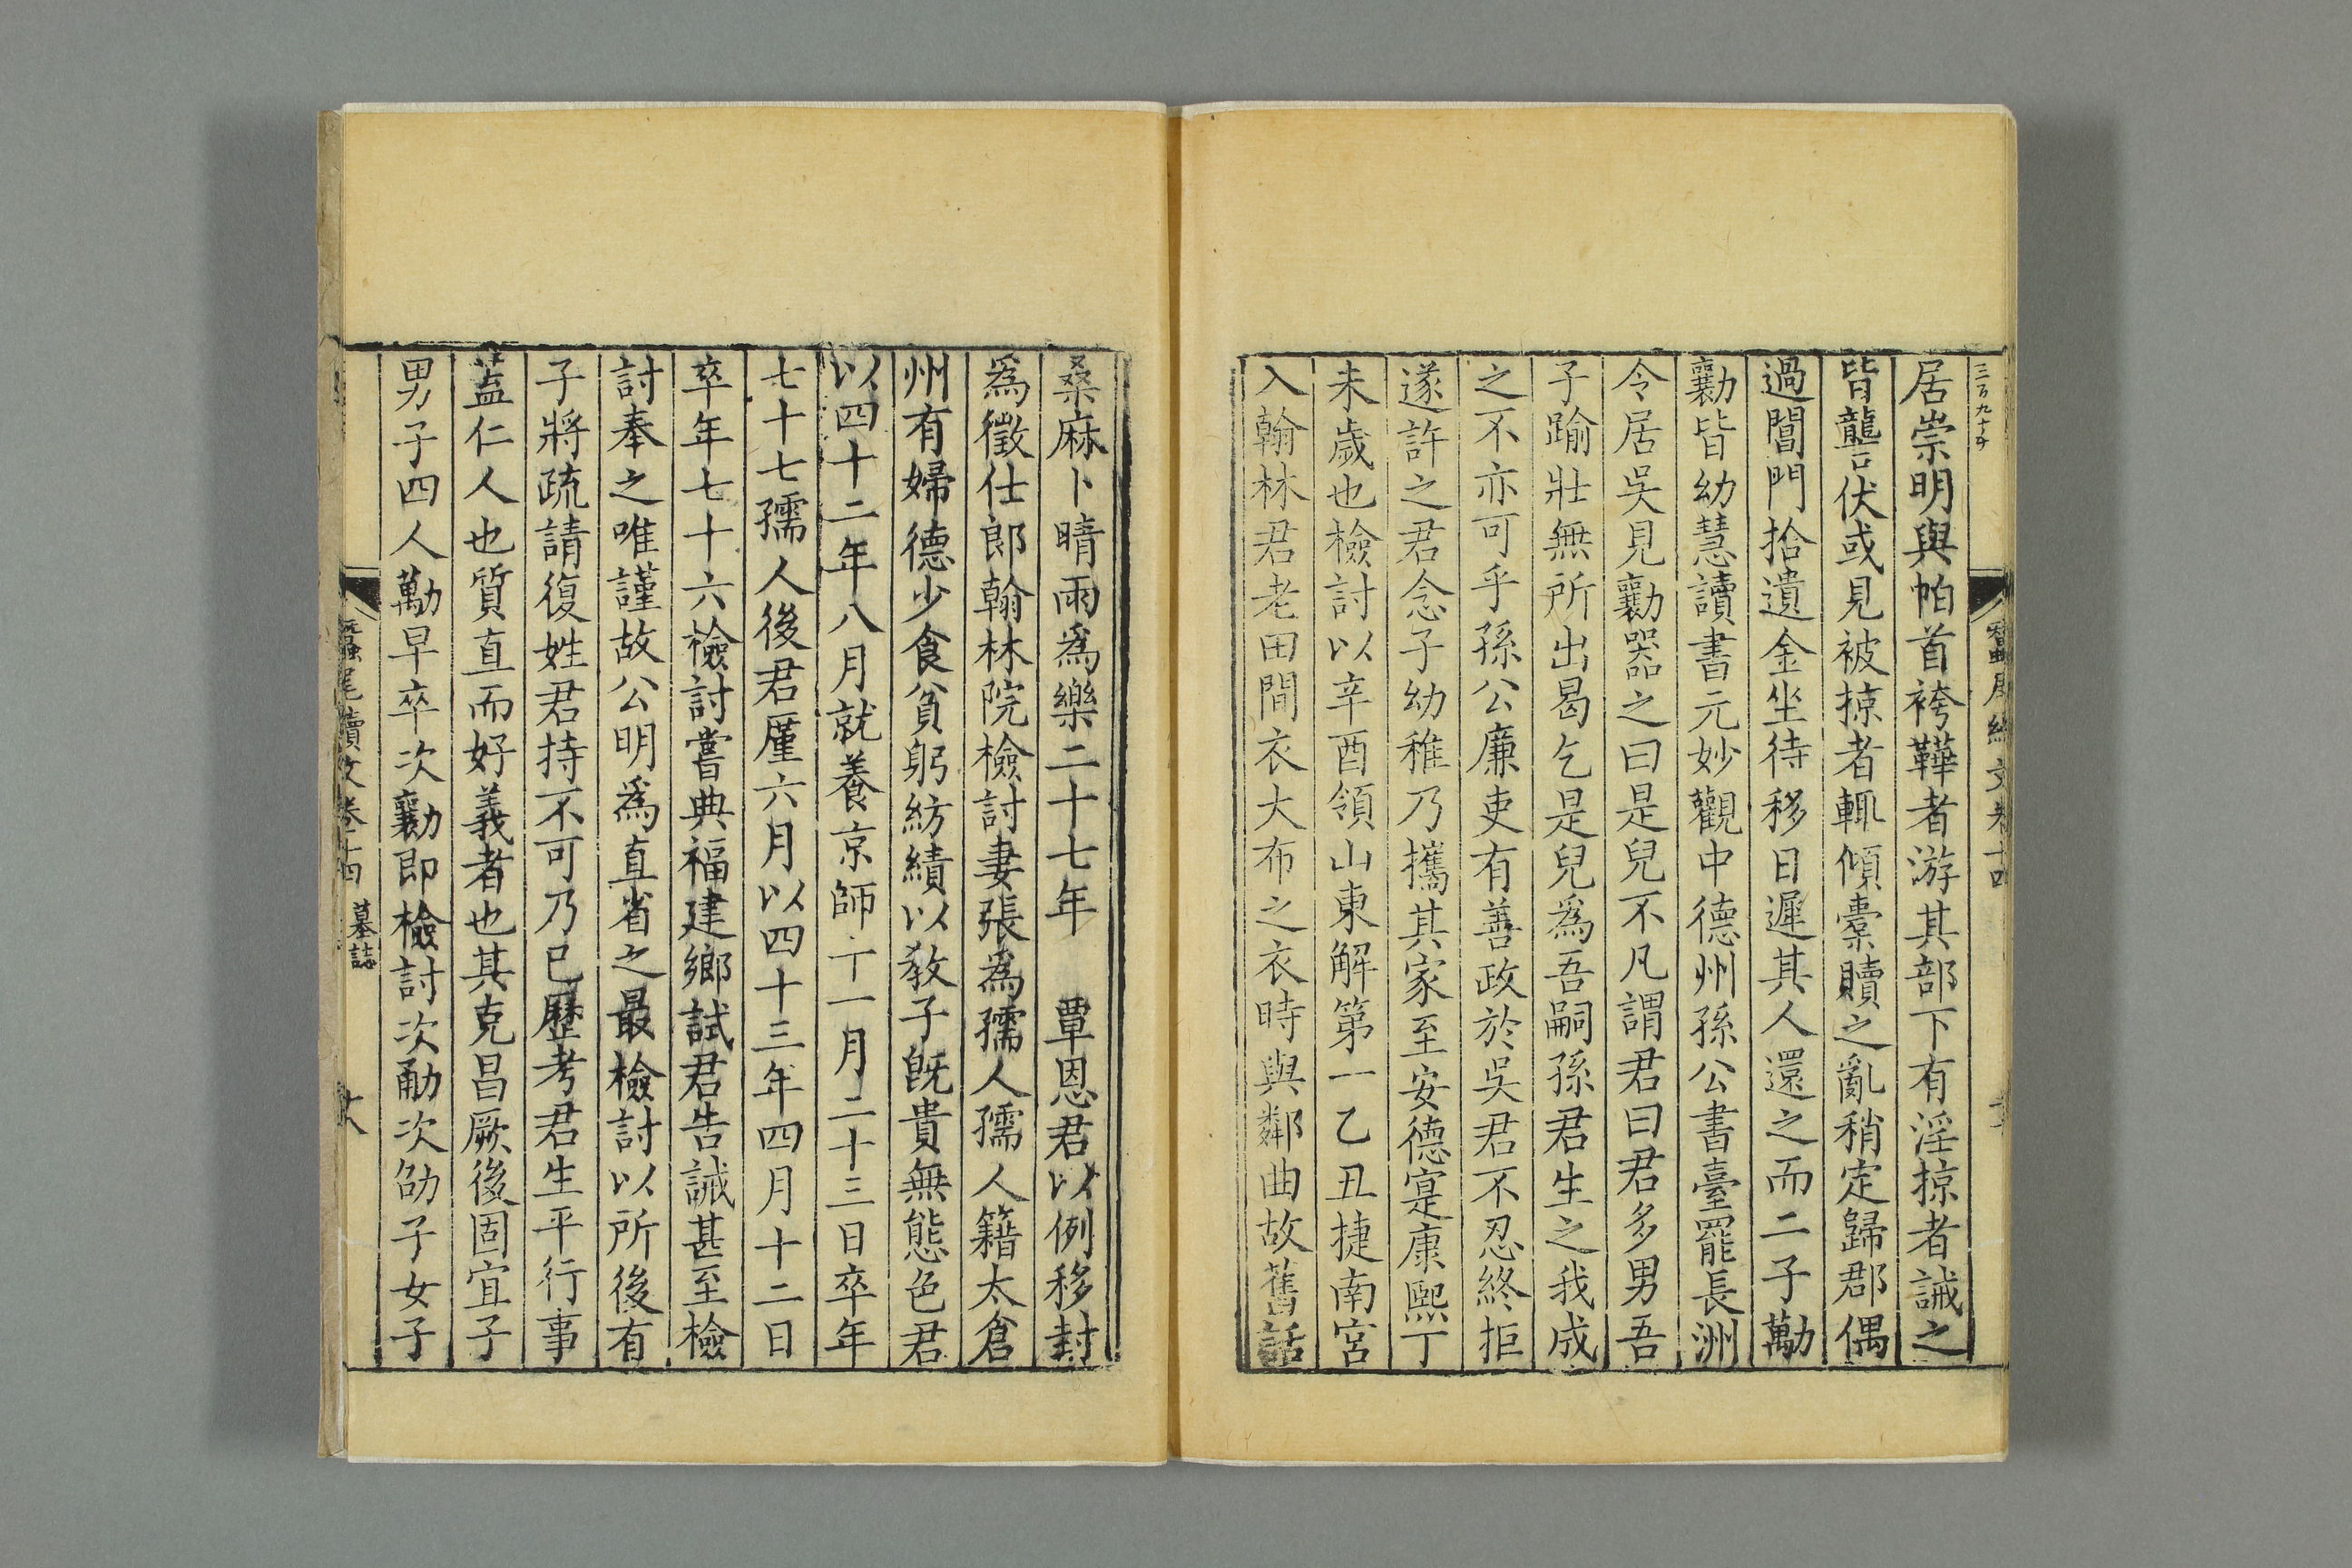 居崇明與帕首袴鞾者游其部下有淫掠者誡之
皆讋伏或見被掠者輒傾橐贖之亂稍定歸郡偶
過閶門拾遺金坐待移日遲其人還之而二子勱
勷皆幼慧讀書元妙觀中德州孫公書臺罷長洲
令居吳見勷器之曰是兒不凡謂君曰君多男吾
子踰壯無所出曷乞是兒爲吾嗣孫君生之我成
之不亦可乎孫公廉吏有善政於吳君不忍終拒
遂許之君念子幼稚乃攜其家至安德寔康熙丁
未歲也檢討以辛酉領山東解第一乙丑捷南宮
入翰林君老田間衣大布之衣時與鄰曲故舊話
桑麻卜晴雨爲樂二十七年　覃恩君以例移封
爲徵仕郎翰林院檢討妻張爲孺人孺人籍太倉
州有婦德少食貧躬紡績以敎子旣貴無態色君
以四十二年八月就養京師十一月二十三日卒年
七十七孺人後君厪六月以四十三年四月十二日
卒年七十六檢討嘗典福建鄉試君告誡甚至檢
討奉之唯謹故公明爲直省之最檢討以所後有
子將疏請復姓君持不可乃已歷考君生平行事
葢仁人也質直而好義者也其克昌厥後固宜子
男子四人勱早卒次勷即檢討次勈次劭子女子
蠶尾續文卷十四 墓誌